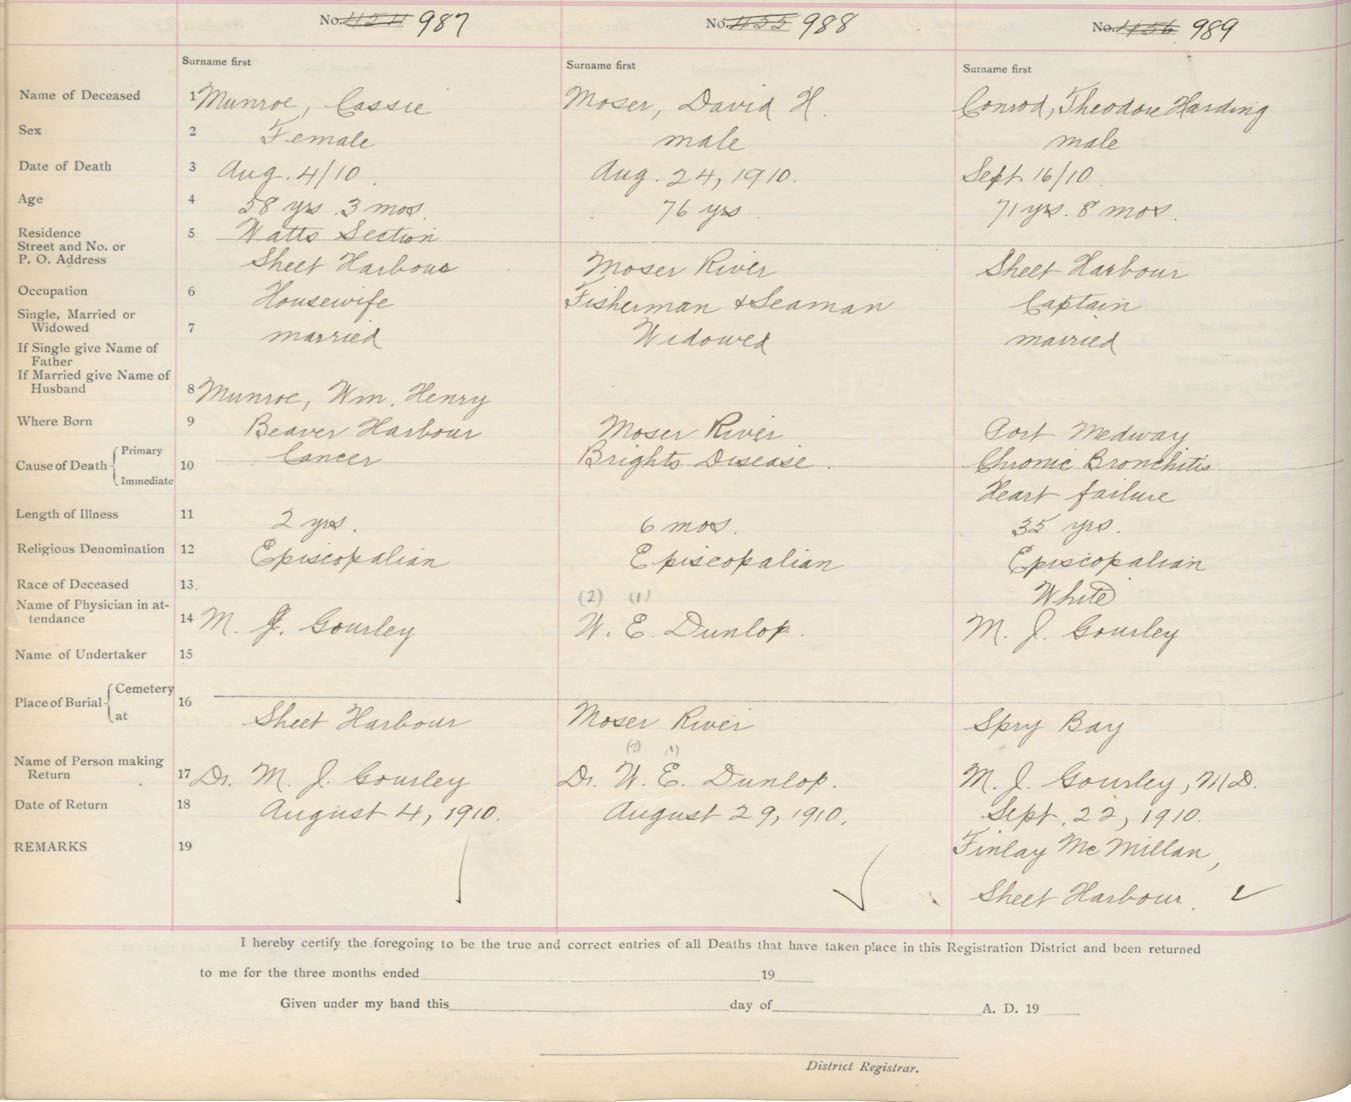 No. 454 987 No. 455 988 No. 456 989
Surname first Surname first Surname first
Name of Deceased 1 Munroe, Cassie Moser, David H. Conrod, Theodore Harding
Sex 2 Female male male
Date of Death 3 Aug. 4/10. Aug. 24, 1910. Sept 16/10
Age 4 58 yrs. 3 mos. 76 yrs 71 yrs. 8 mos.
Residence 5 Watts Section
Street and No. or
P. O. Address Sheet Harbour Moser River Sheet Harbour
Occupation 6 Housewife Fisherman & Seaman Captain
Single, Married or
Widowed 7 married Widowed married
If Single give Name of
Father
If Married give Name of
Husband 8 Munroe, Wm. Henry
Where Born 9 Beaver Harbour Moser River Port Medway
Cause of Death Primary 10 Cancer Brights Disease. Chronic Bronchitis
Immediate Heart failure
Length of Illness 11 2 yrs. 6 mos. 35 yrs.
Religious Denomination 12 Episcopalian Episcopalian Episcopalian
Race of Deceased 13. White
(2) (1)
Name of Physician in at-
tendance 14 M. J. Gourley W. E. Dunlop. M. J. Gourley
Name of Undertaker 15
Place of Burial Cemetery 16
at Sheet Harbour Moser River Spry Bay
(2) (1)
Name of Person making
Return 17 Dr. M. J. Gourley Dr. W. E. Dunlop. M. J. Gourley, M.D.
Date of Return 18 August 4, 1910. August 29, 1910. Sept. 22, 1910.
REMARKS 19 Finlay McMillan,
Sheet Harbour.
I hereby certify the foregoing to be the true and correct entries of all Deaths that have taken place in this Registration District and been returned
to me for the three months ended 19
Given under my hand this day of A. D. 19
District Registrar.